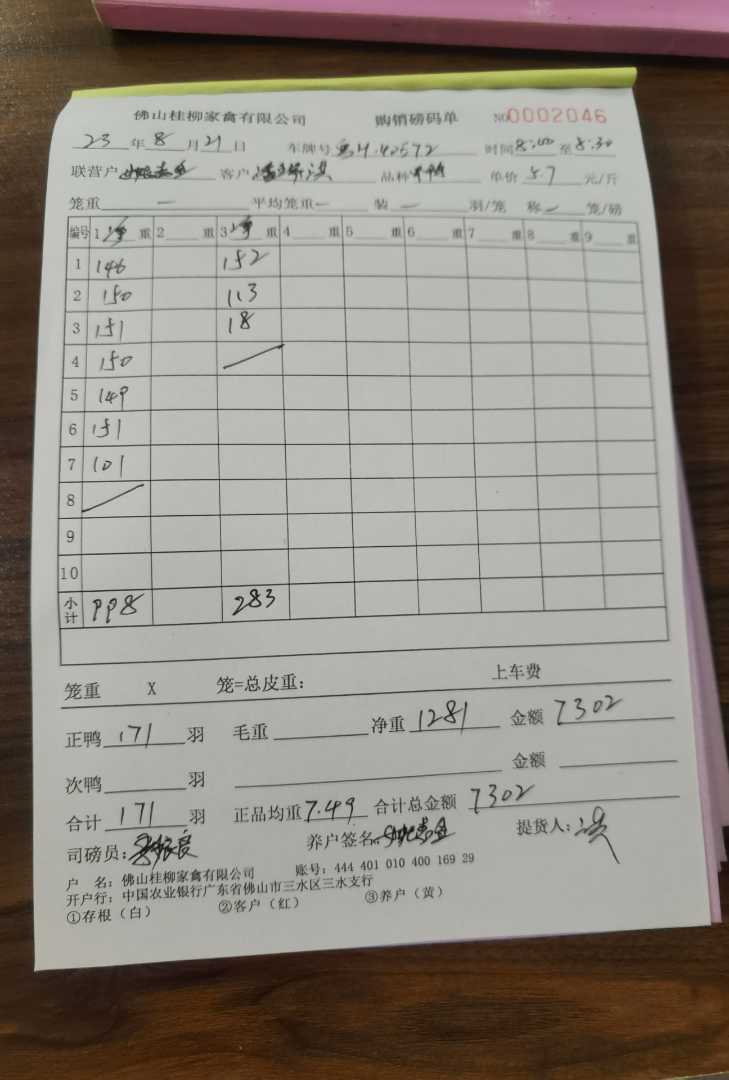 佛山桂柳家禽有限公司 购销磅码单 NO0002046
23年8月21日 车牌号 42572 时间8:00至8:30
联营户 客户 品种 单价5.7元/斤
笼重 — 平均笼重 — 装 — 羽/笼 称 — 笼/磅
编号 1净重 2 重 3净重 4 重 5 重 6 重 7 重 8 重 9 重
1 146 152
2 150 113
3 151 18
4 150
5 149
6 151
7 101
8
9
10
小计 998 283
笼重 X 笼=总皮重: 上车费
正鸭 171 羽 毛重 净重 1281 金额 7302
次鸭 羽 金额
合计 171 羽 正品均重 7.49 合计总金额 7302
司磅员: 养户签名 提货人:
户 名: 佛山桂柳家禽有限公司 账号: 444 401 010 400 169 29
开户行: 中国农业银行广东省佛山市三水区三水支行
①存根(白) ②客户(红) ③养户(黄)